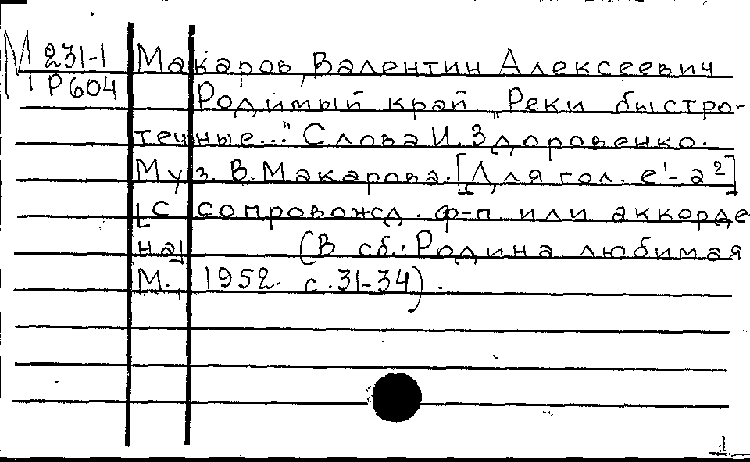 М 231-1 Макаров, Валентин Алексеевич
Р604 Родимый край "Реки быстро-
течные..." Слова И. Здоровенко.
Муз. В. Макарова. [Для гол. e¹-a²]
[с сопровожд. ф-п. или аккорде
на] (В сб.: Родина любимая
М., 1952. с. 31-34).
1